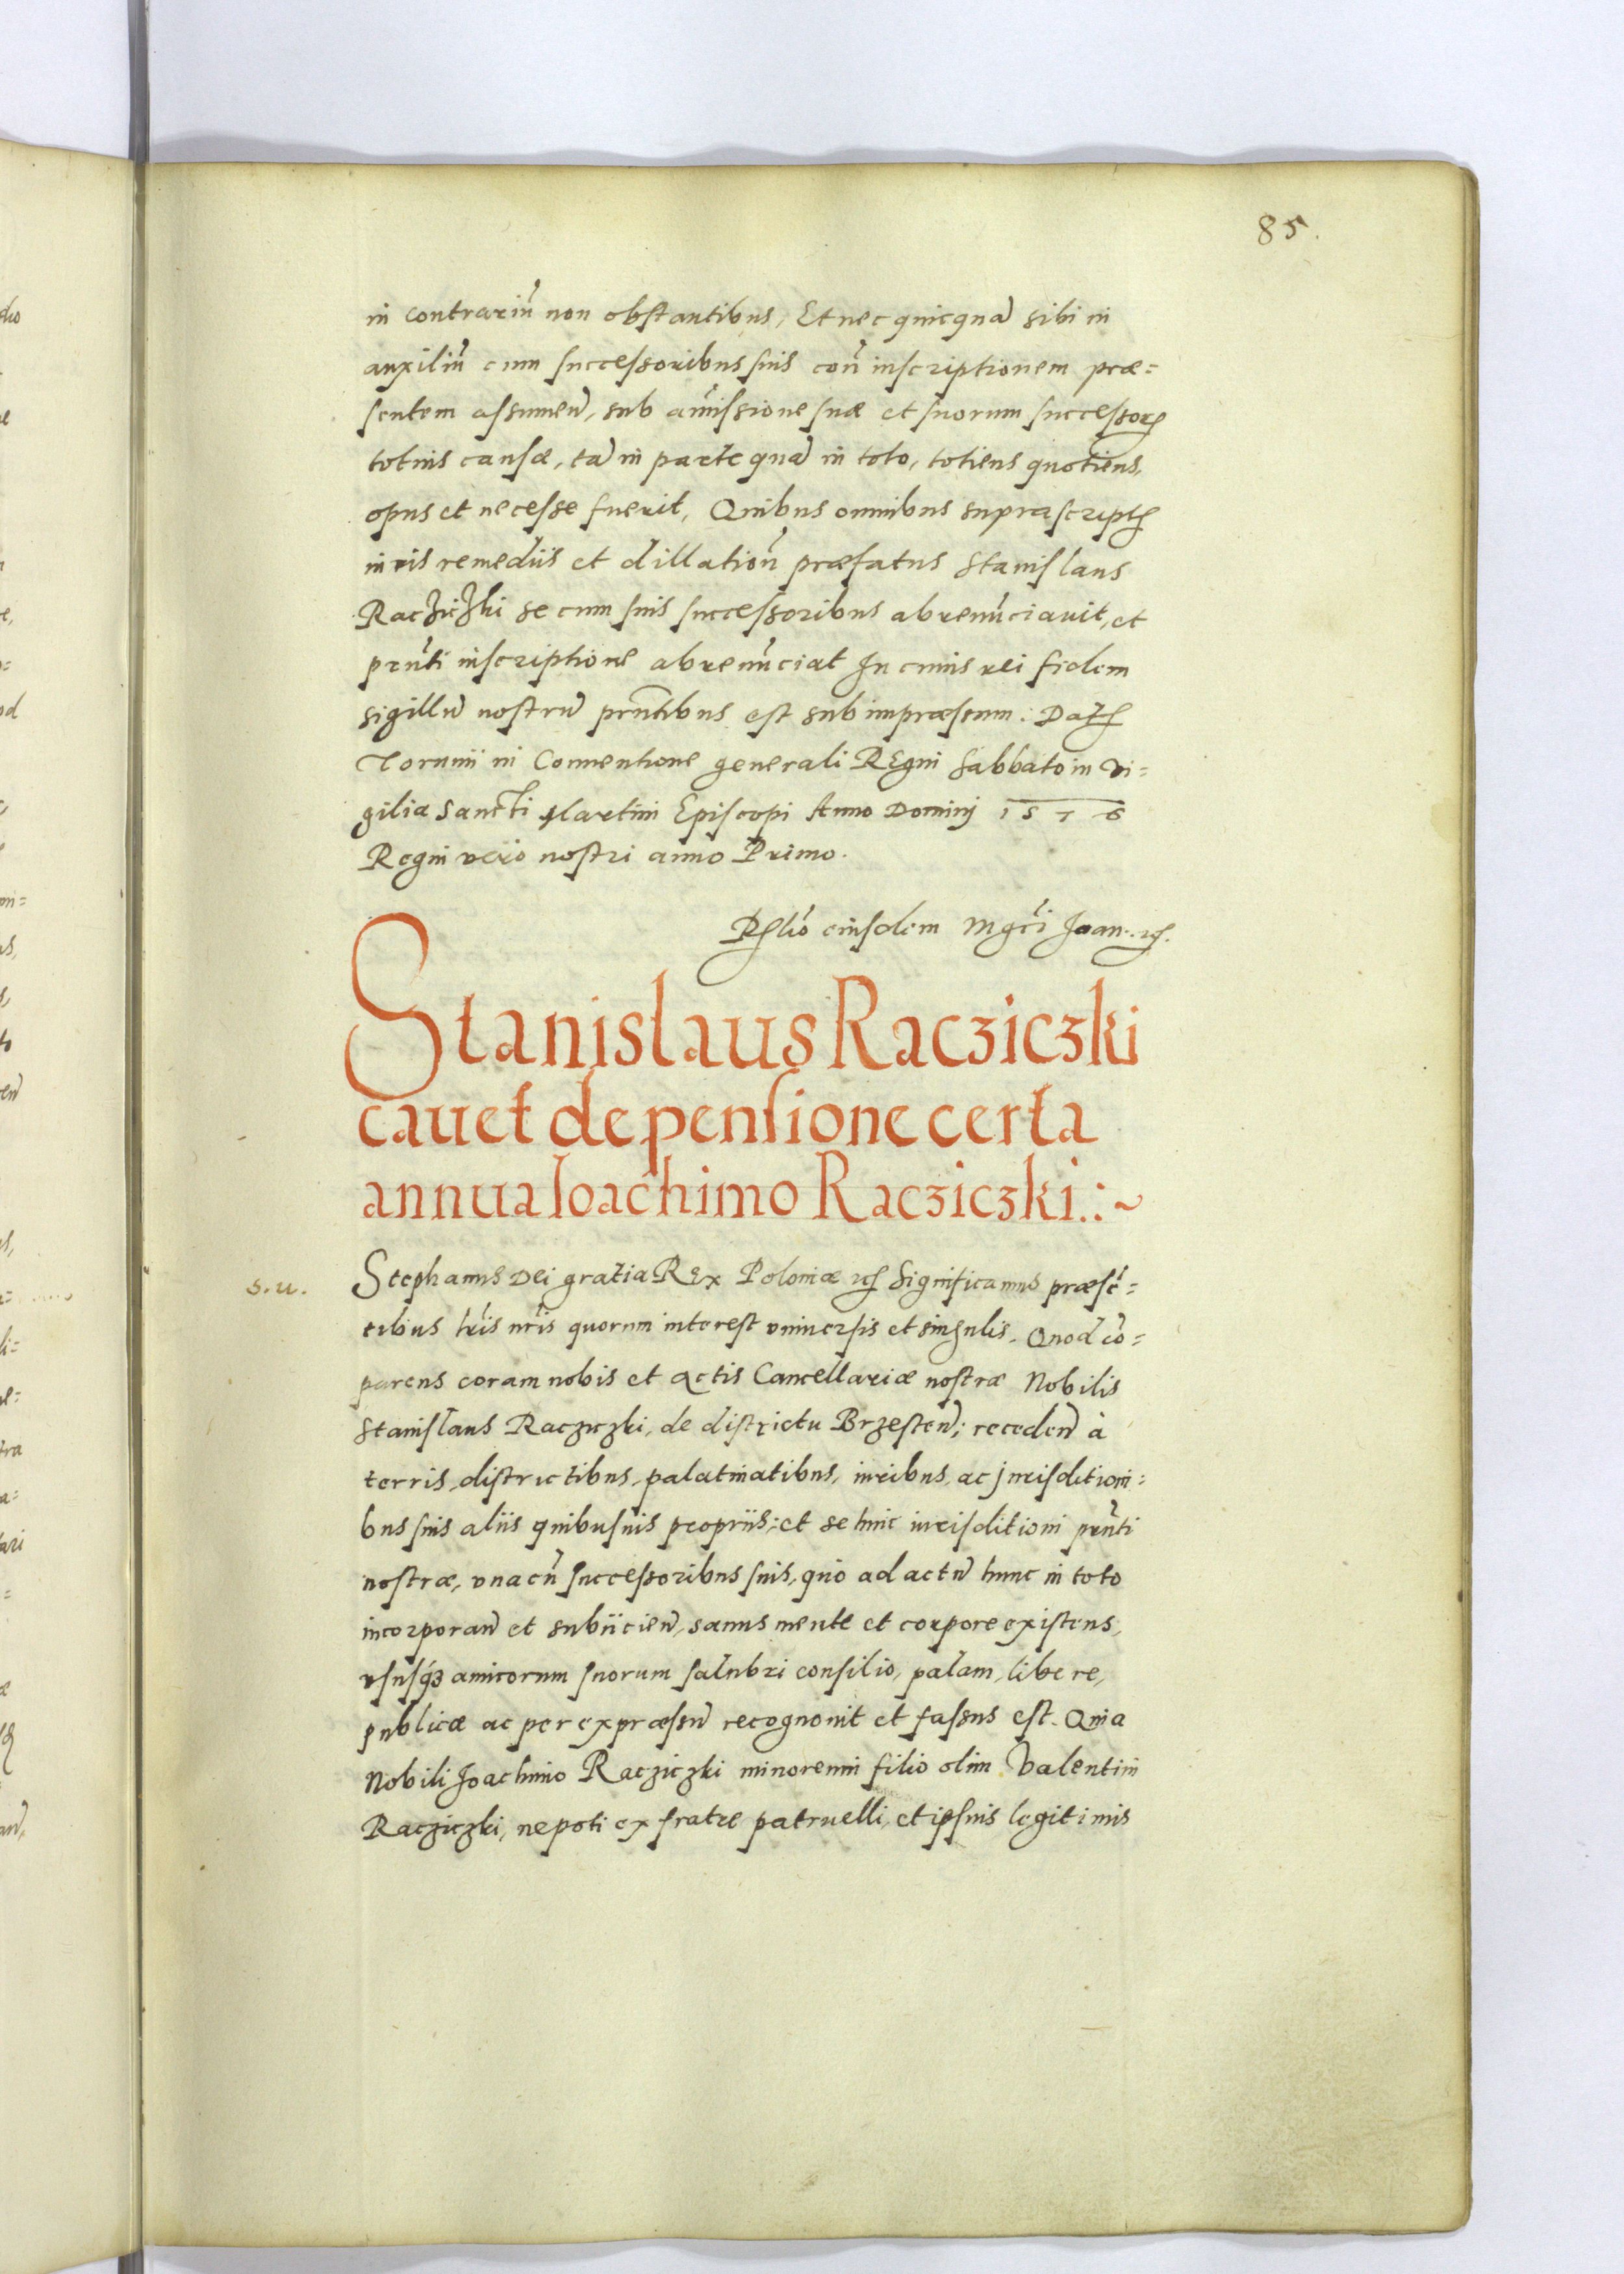 85.
in contrariu̅ non obstantibus, Et nec quicqua̅ sibi in
auxiliu̅ cum successoribus suis con̅ inscriptionem præ=
sentem assumen̅, sub amissione suæ et suorum successorꝝ
totius causæ, ta̅ in parte qua̅ in toto, totiens quotiens,
opus et necesse fuerit, Quibus omnibus suprascriptꝭ
iuris remediis et dillation̅ præfatus Stanislaus
Racziczki se cum suis successoribus abrenu̅ciavit, et
prn̅ti inscriptione abrenu̅ciat In cuius rei fidem
sigillu̅ nostru̅ prn̅tibus est sub impræssum: Datꝭ
Torunii in Conventione generali REgni Sabbato in vi=
gilia Sancti Martini Episcopi Anno Dominj 1576
Regni vero nostri anno Primo.
Rl̅io eiusdem Mgci̅ Joan. ꝛꝭ.
Stanislaus Racziczki
cavet de pensione certa
annua Ioachimo Racziczki.:~
s. u.
Stephanus Dei gratia REx Poloniæ ꝛꝭ Significamus præse̅=
tibus lr̅is nr̅is quorum interest vniversis et singulis. Quod co̅=
parens coram nobis et actis Cancellariæ nostræ Nobilis
Stanislaus Racziczki, de districtu Brzesten̅; receden̅ à
terris, districtibus, palatinatibus, iuribus, ac jurisditioni=
bus suis aliis quibusuis propriis; et se huic iurisditioni prn̅ti
nostræ, vna cu̅ successoribus suis, quo ad actu̅ hunc in toto
incorporan̅ et subiicien̅, sanus mente et corpore existens,
vsusq́ꝫ amicorum suorum salubri consilio, palam, libere,
publicæ ac per expræssu̅ recognovit et fassus est. Quia
Nobili Joachimo Racziczki minorenni filio olim Valentini
Racziczki, nepoti ex fratre patruelli, et ipsius legitimis